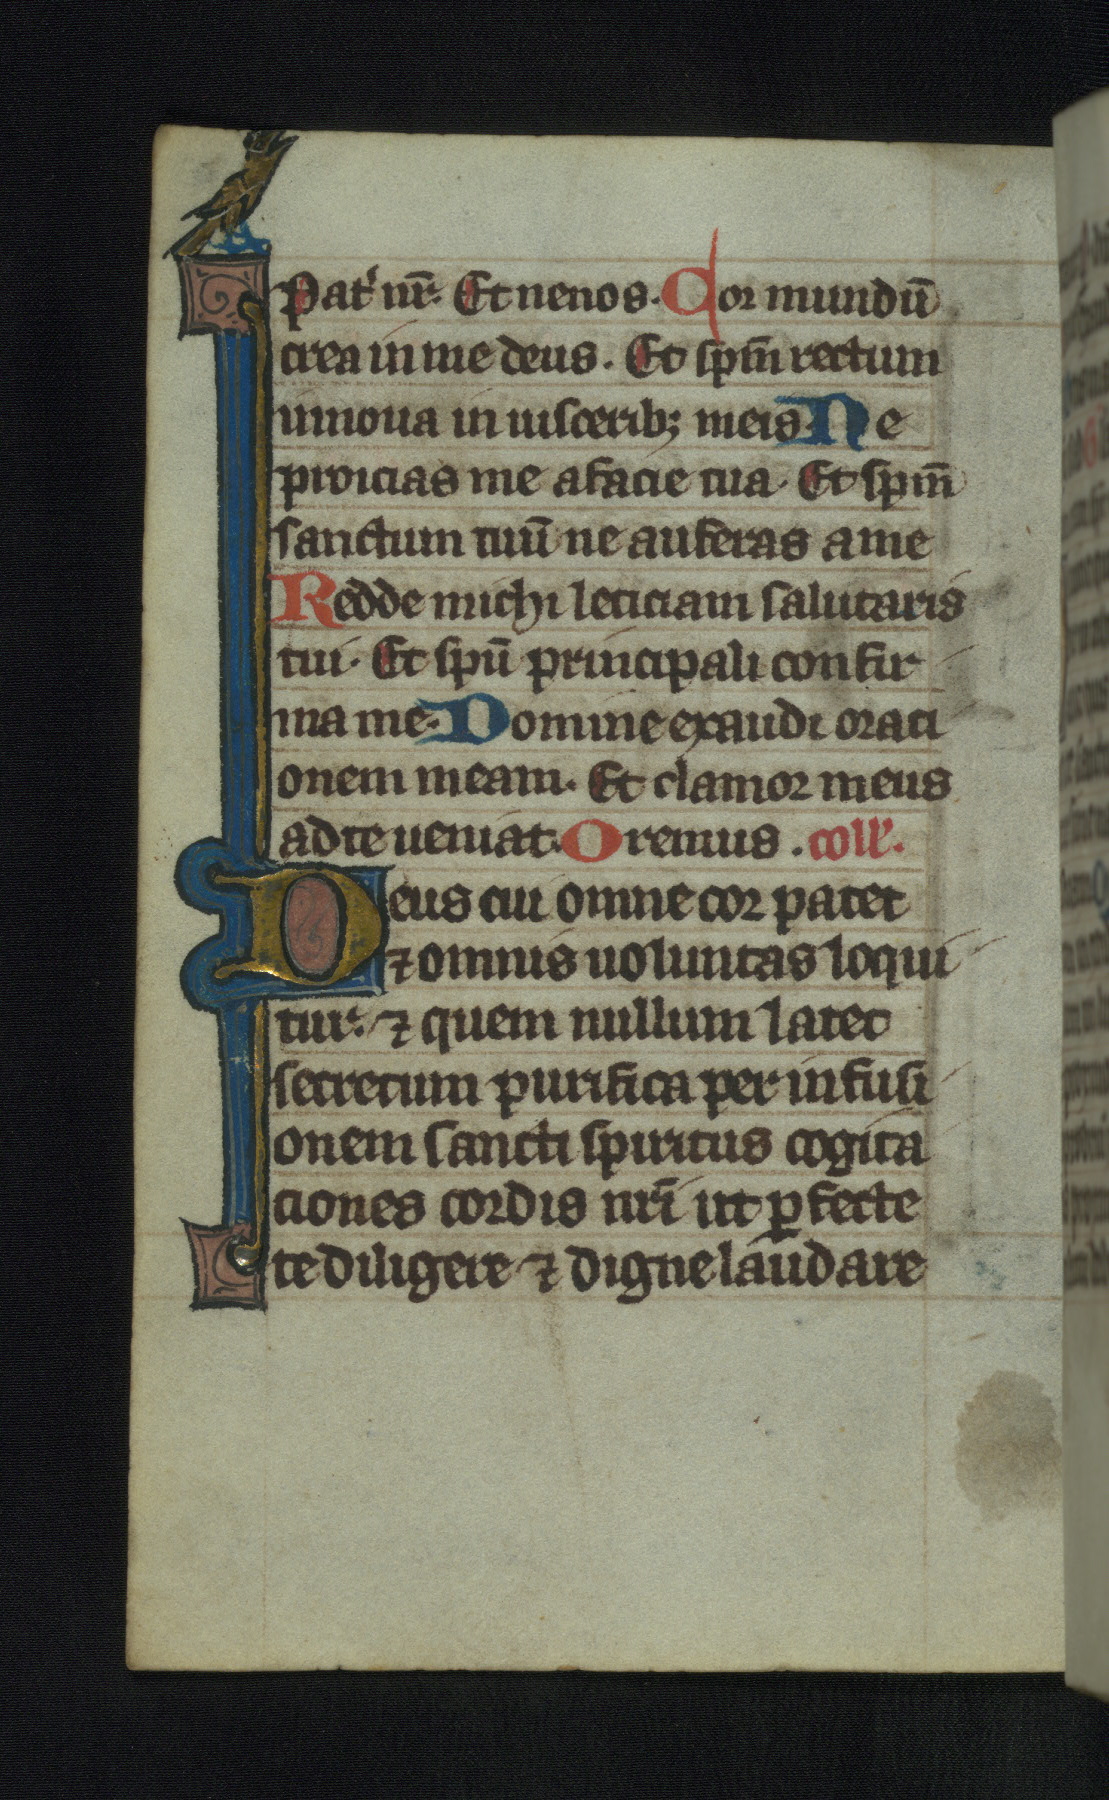 Pat᷑ nr̅. Et nenos. Cor mundū
crea in me deus. Et spm̅ rectum
innoua in uiscerib; meis. Ne
proicias me afacie tua. Et spm̅
sanctum tuū ne auferas ame
Redde michi leticiam salutaris
tui. Et spū principali confir
ma me. Domine exaudi orati
onem meam. Et clamor meus
adte ueniat. Oremus. coll̅.
Deus cui omne cor patet
⁊ omnis uoluntas loqui
tur. ⁊ quem nullum latet
secretum purifica per infusi
onem sancti spiritus cogita
ciones cordis nr̅i ut ꝑfecte
te diligere ⁊ digne laudare